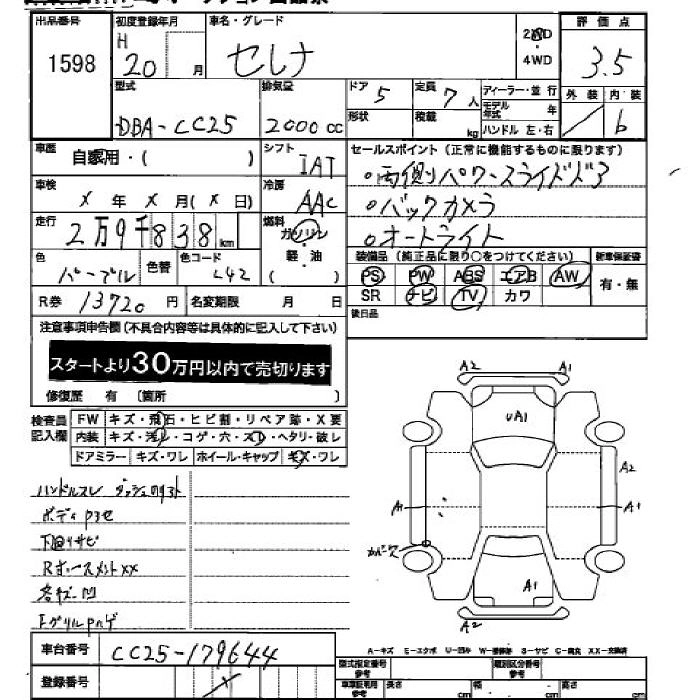 出品番号 初度登録年月 車名・グレード 評価点
1598 H 20 月 セレナ 2WD・4WD 3.5
型式 排気量 ドア 5 定員 7人 ディーラー・並行 外装 内装
DBA-CC25 2000cc 形状 積載 kg モデル年式 年 b
ハンドル 左・右
車歴 自家用・( ) シフト IAT セールスポイント(正常に機能するものに限ります)
車検 X年X月(X日) 冷房 AAC 。両側パワースライドドア
走行 2万9千838km 燃料 ガソリン・軽・油 。バックカメラ
。オートライト
色 パープル 色替 色コード L42 装備品(純正品に限り○をつけてください) 新車保証書
PS PW ABS エアB AW 有・無
R券 13720円 名変期限 月 日 SR ナビ TV カワ
注意事項申告欄(不具合内容等は具体的に記入して下さい) 後日品
スタートより30万円以内で売切ります
修復歴 有 〔箇所 〕
検査員記入欄 FW キズ・飛石・ヒビ割・リペア跡・X要
内装 キズ・汚レ・コゲ・穴・スレ・ヘタリ・破レ
ドアミラー キズ・ワレ ホイール・キャップ キズ・ワレ
ハンドルスレ
下回りサビ
A2 A1
UA1
A2
A1 A1
A1
A2
A-キズ E-エクボ U-凹み W-補修跡 S-サビ C-腐食 XX-交換済
車台番号 CC25-179644
登録番号
型式指定番号 参考 類別区分番号 参考
車車証明用 参考 長さ cm 幅 cm 高さ cm